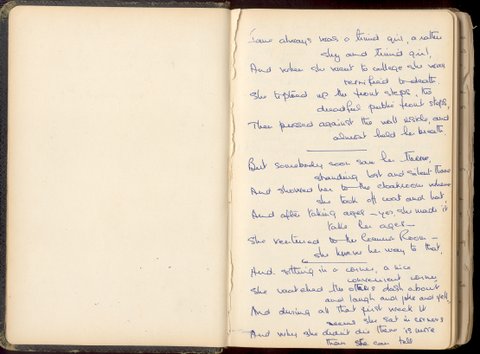 Jane always was a timid girl, a rather
shy and timid girl,
And when she went to college she was
terrified to death.
She tiptoed up the front steps, the
dreadful public front steps,
Then pressed against the wall inside, and
almost held her breath.
But somebody soon saw her there,
standing lost and silent there
And showed her to the cloakroom where
she took off coat and hat,
And after taking ages – yes, she made it
take her ages –
She ventured to the Common Room –
she knew her way to that.
And sitting in a corner, a nice
convenient corner,
She watched the others dash about
and laugh and joke and yell,
And during all that first week it
seems she sat in corners
And why she didn't die there is more
than she can tell